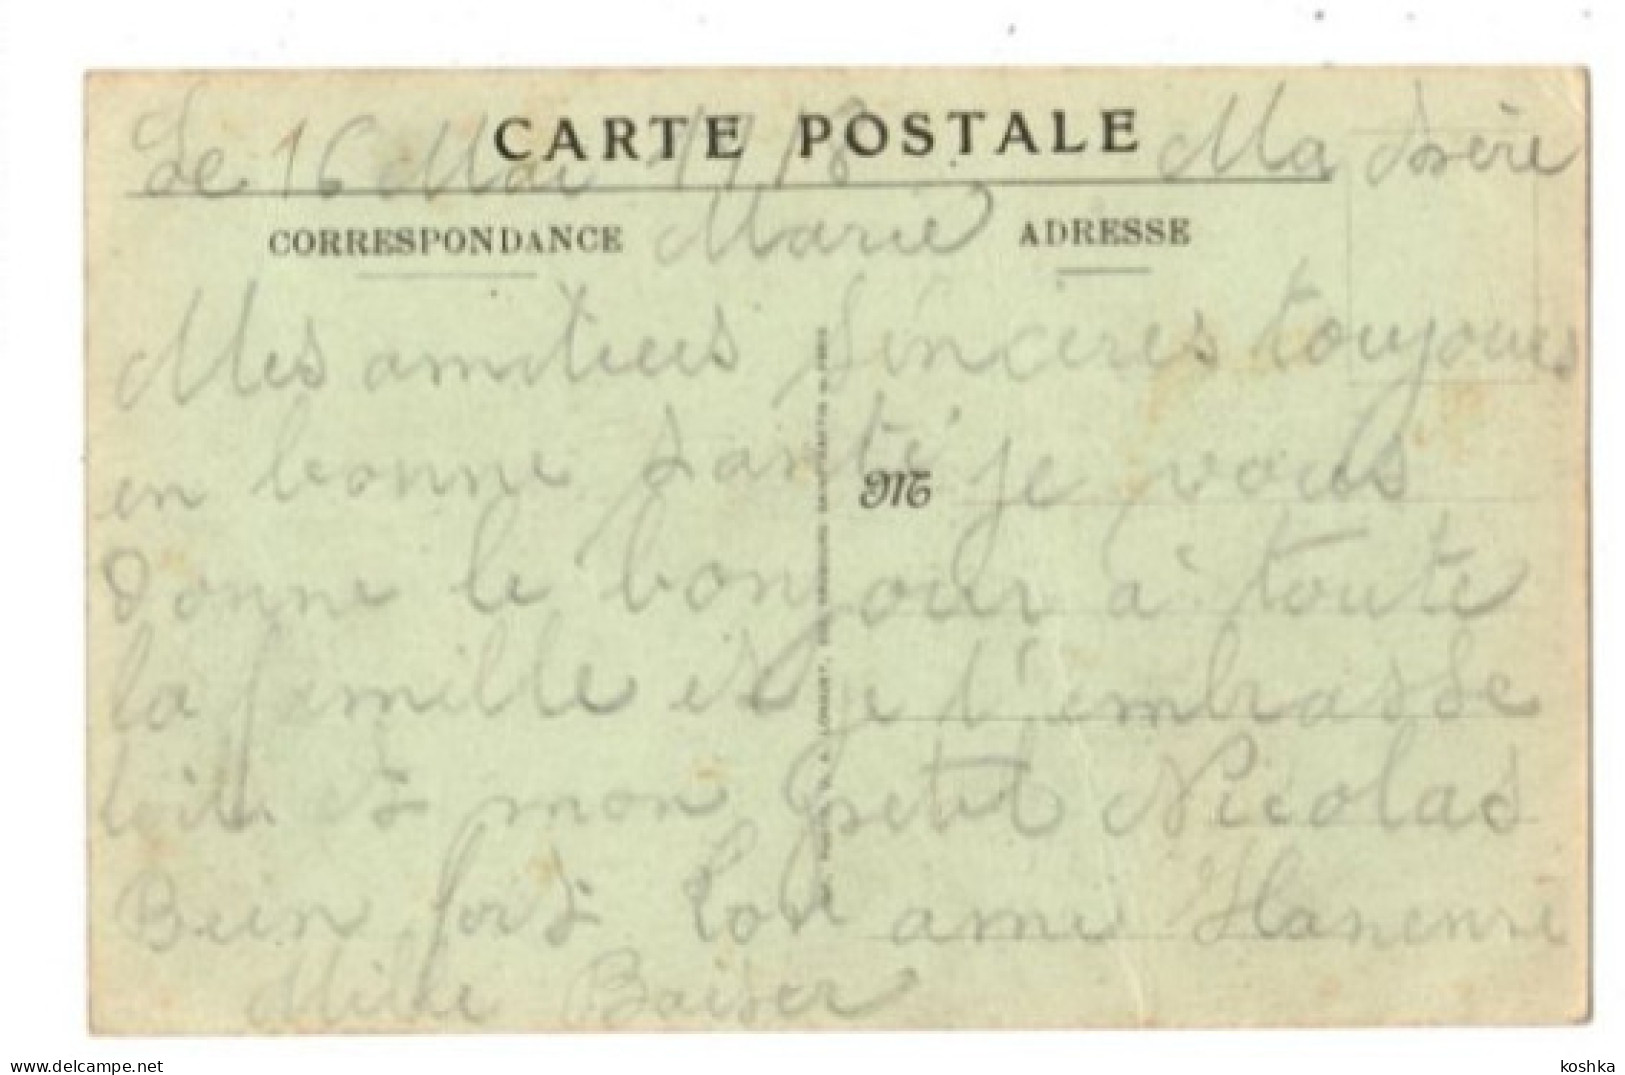 CARTE POSTALE
Le 16 Mai 1918 Ma
CORRESPONDANCE Marie ADRESSE
Mes amitiers sinceres toujours
en bonne santé je vous
M
donne le bonjour a toute
la famille et je t'embrasse
et mon petit Nicolas
Bien fort ton ami
Mille Baiser
koshka
delcampe.net